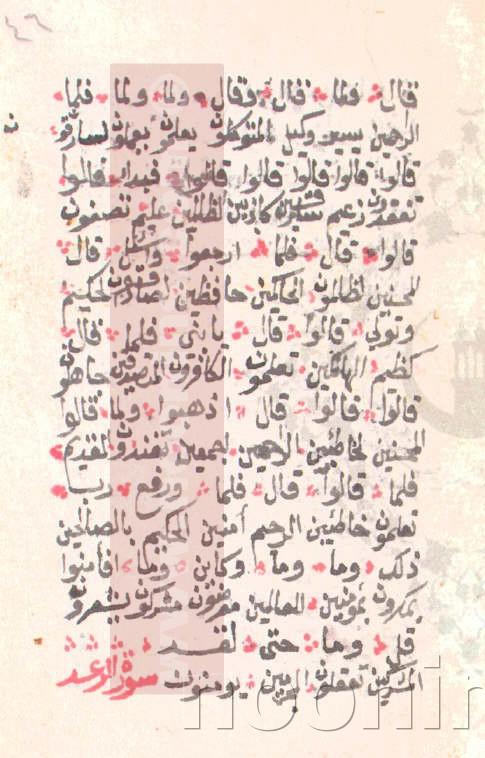 ٤٦
قال فلما قال وقال ولما ولما فلما
الراحمين يسير وكيل المتوكلون يعلمون يعملون لسارقون
قالوا قالوا قالوا قالوا قالوا فبدأ قالوا
تفقدون زعيم سارقين كاذبين الظالمين عليم تصفون
قالوا قال فلما ارجعوا واسئل قال
المحسنين لظالمون الحاكمين حافظين لصادقون الحكيم
وتولى قالوا قال يا بنى فلما قال
كظيم الهالكين تعلمون الكافرون المتصدقين جاهلون
قالوا قالوا قال اذهبوا ولما قالوا
المحسنين لخاطئين الراحمين اجمعين تفندون القديم
فلما قالوا قال فلما ورفع رب
تعلمون خاطئين الرحيم آمنين الحكيم بالصالحين
ذلك وما وما وكاين وما افأمنوا
يمكرون بمؤمنين للعالمين معرضون مشركون يشعرون
قل وما حتى لقد
المشركين تعقلون المجرمين يومنون سورة الرعد
noorlib